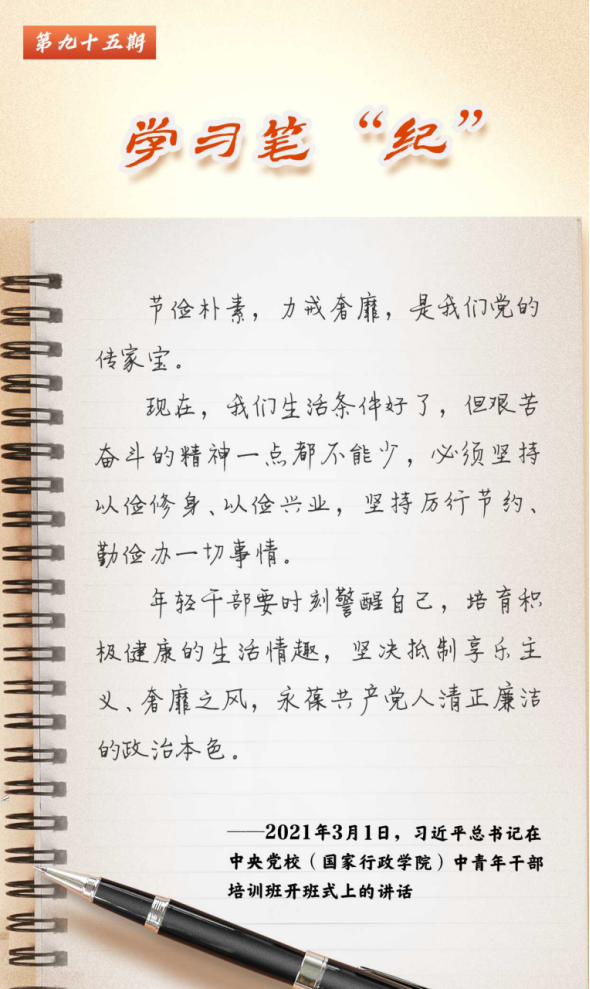 第九十五期
学习笔“纪”
节俭朴素，力戒奢靡，是我们党的
传家宝。
现在，我们生活条件好了，但艰苦
奋斗的精神一点都不能少，必须坚持
以俭修身、以俭兴业，坚持厉行节约、
勤俭办一切事情。
年轻干部要时刻警醒自己，培育积
极健康的生活情趣，坚决抵制享乐主
义、奢靡之风，永葆共产党人清正廉洁
的政治本色。
——2021年3月1日，习近平总书记在
中央党校（国家行政学院）中青年干部
培训班开班式上的讲话